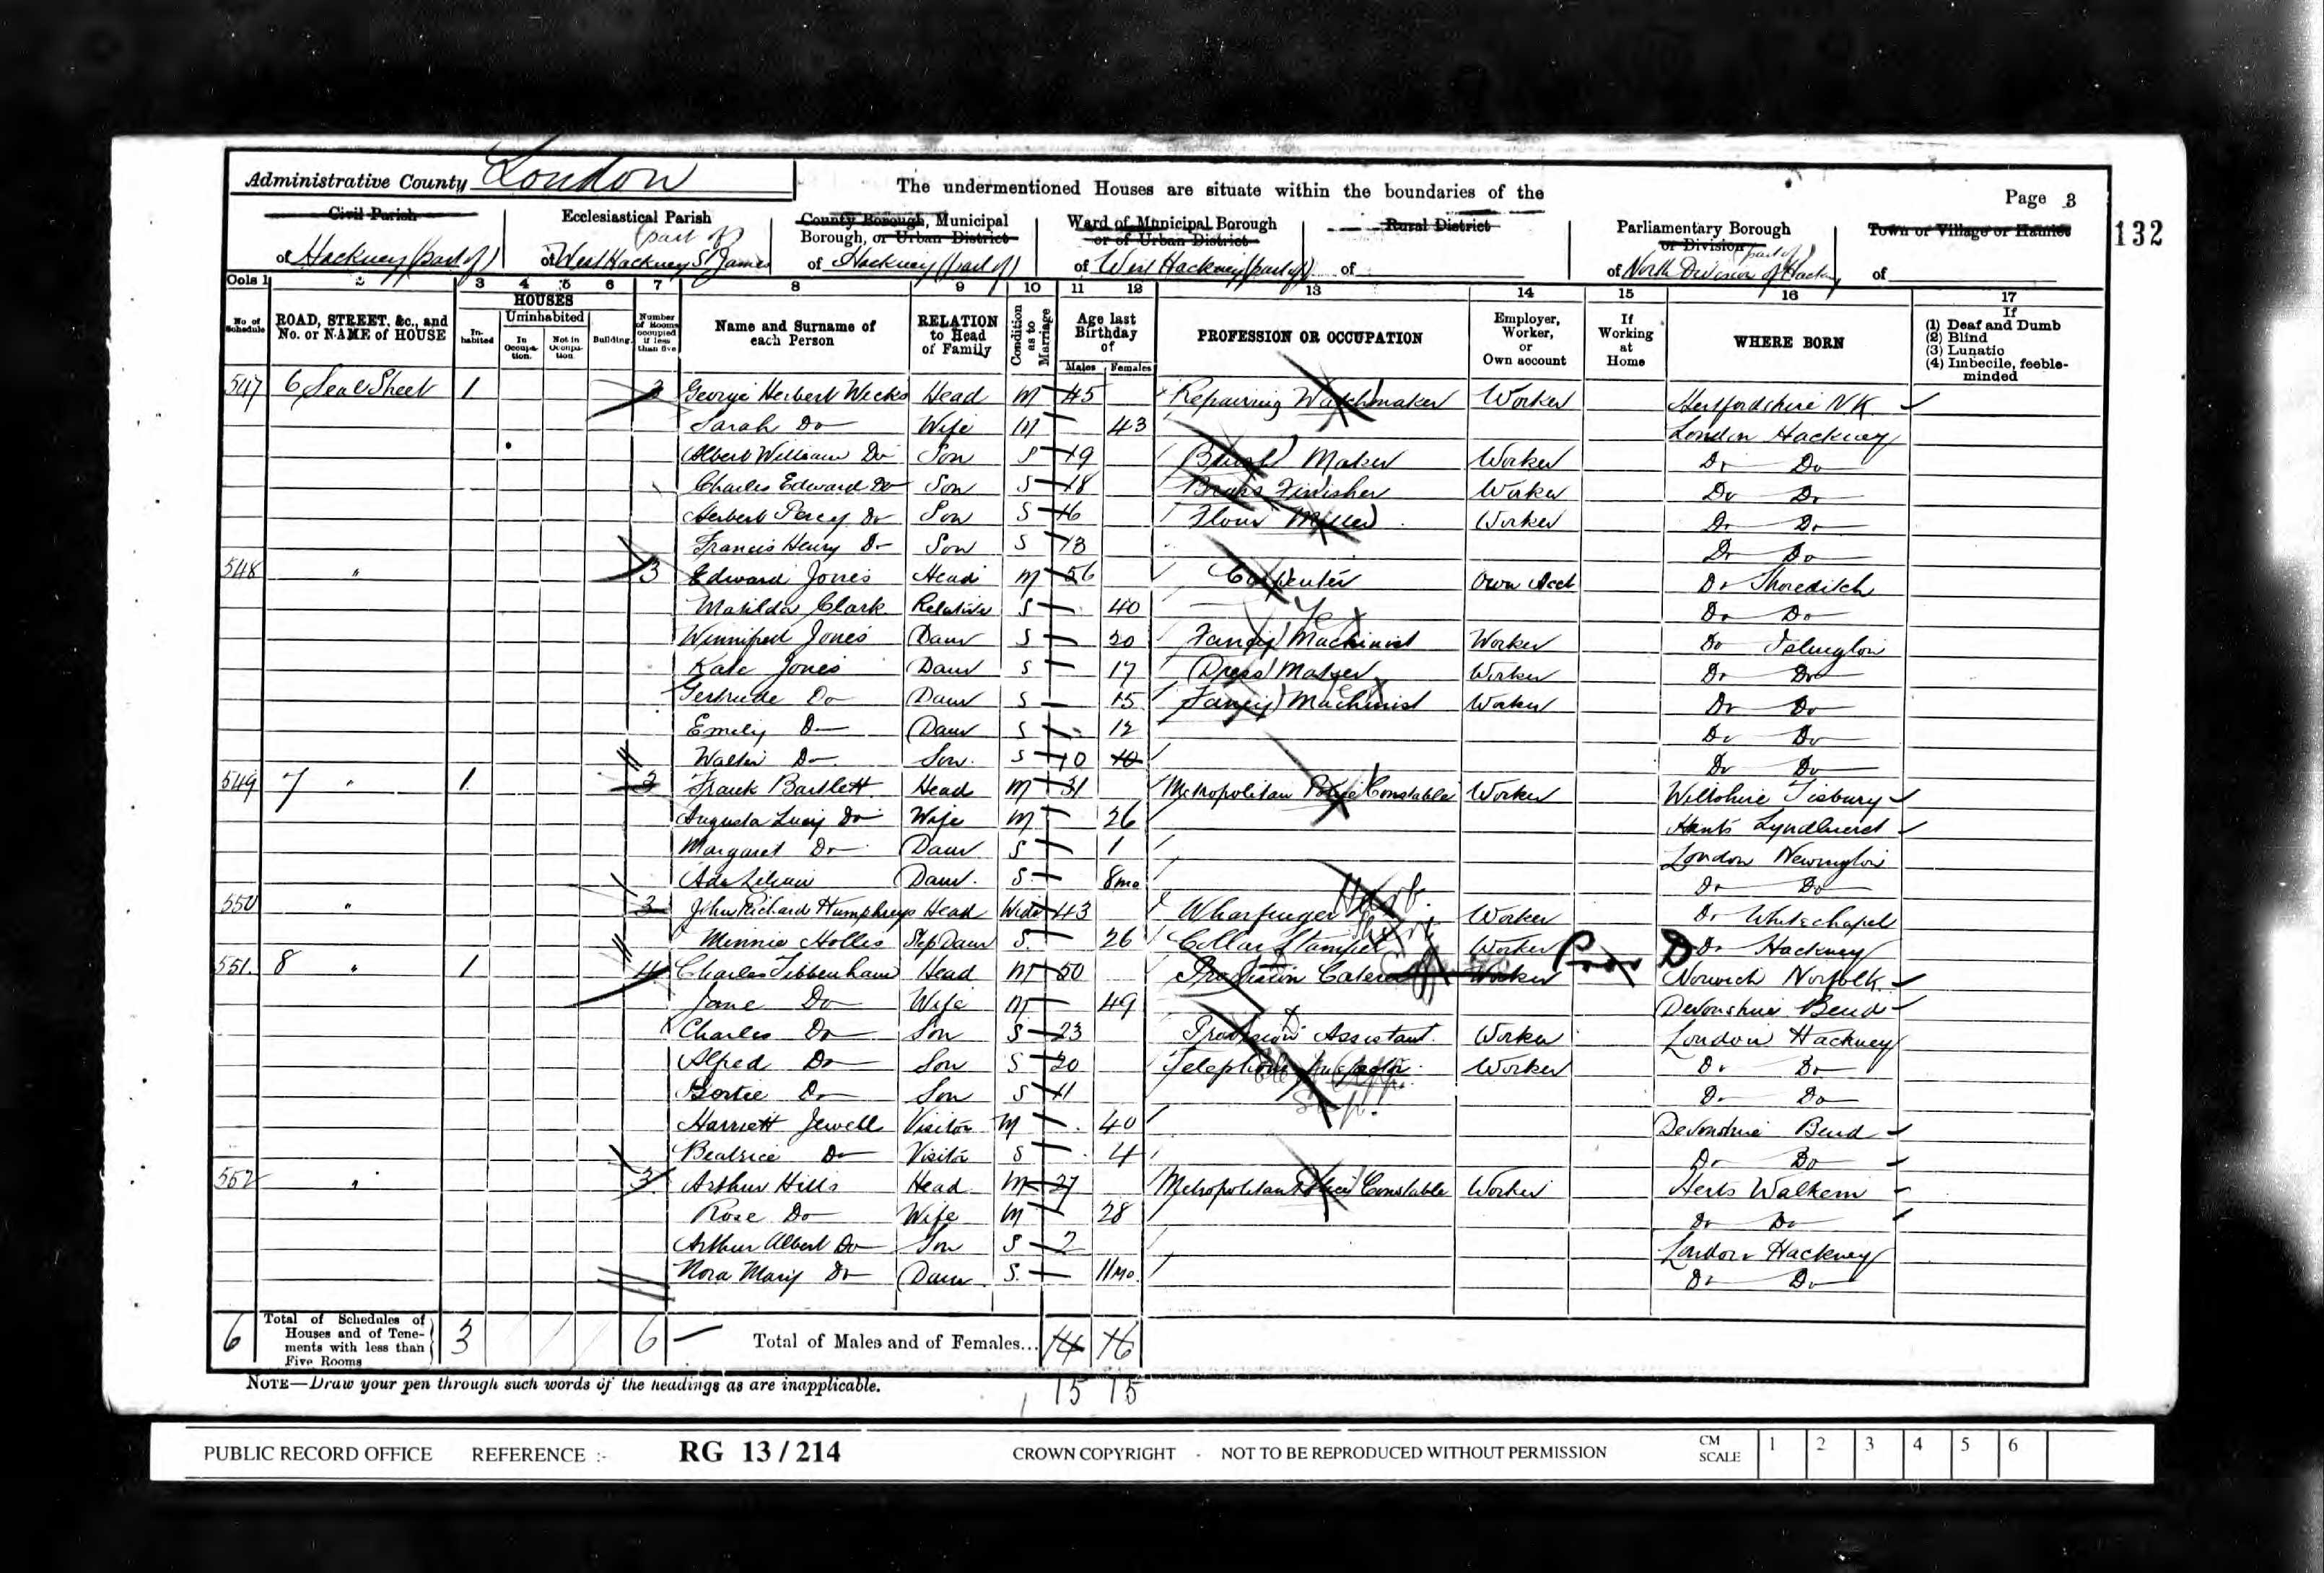 Administrative County London
The undermentioned Houses are situate within the boundaries of the
Page 3
132
Civil Parish
of Hackney (part of)
Ecclesiastical Parish
(part of)
of West Hackney St James
County Borough, Municipal
Borough, or Urban District
of Hackney (part of)
Ward of Municipal Borough
or of Urban District
of West Hackney (part of)
Rural District
of
Parliamentary Borough
or Division
(part of)
of North Division of Hackney
Town or Village or Hamlet
of
Cols 1 2 3 4 5 6 7 8 9 10 11 12 13 14 15 16 17
No of Schedule
ROAD, STREET, &c., and No. or NAME of HOUSE
HOUSES
In-habited
Uninhabited
In Occupa-tion.
Not in Occupa-tion
Building.
Number of Rooms occupied if less than five
Name and Surname of each Person
RELATION to Head of Family
Condition as to Marriage
Age last Birthday of
Males Females
PROFESSION OR OCCUPATION
Employer, Worker, or Own account
If Working at Home
WHERE BORN
If
(1) Deaf and Dumb
(2) Blind
(3) Lunatic
(4) Imbecile, feeble-minded
547 6 Seal Street 1 3 George Herbert Wicks Head M 45 Repairing Watchmaker Worker Hertfordshire N.K.
Sarah Do Wife M 43 London Hackney
Albert William Do Son S 19 Brush Maker Worker Do Do
Charles Edward Do Son S 18 Brass Finisher Worker Do Do
Herbert Percy Do Son S 16 Flour Miller Worker Do Do
Francis Henry Do Son S 13 Do Do
548 " 3 Edward Jones Head M 56 Carpenter Own Acct Do Shoreditch
Matilda Clark Relative S 40 Do Do
Winnifred Jones Daur S 20 Fancy Machinist Worker Do Islington
Kate Jones Daur S 17 Dress Maker Worker Do Do
Gertrude Do Daur S 15 Fancy Machinist Worker Do Do
Emily Do Daur S 12 Do Do
Walter Do Son S 10 10 Do Do
549 7 " 1 3 Frank Bartlett Head M 31 Metropolitan Police Constable Worker Wiltshire Tisbury
Augusta Lucy Do Wife M 26 Hants Lyndhurst
Margaret Do Daur S 1 London Newington
Ada Lilian Daur. S. 8mo Do Do
550 " 3 John Richard Humphreys Head Widr 43 Wharfinger Worker Do Whitechapel
Minnie Hollis Step Daur S. 26 Collar Stamper Worker Do Hackney
551. 8 " 1 4 Charles Tibbenham Head M 50 Provision Worker Norwich Norfolk
Jane Do Wife M 49 Devonshire
Charles Do Son S 23 Provision Assistant. Worker London Hackney
Alfred Do Son S 20 Telephone Inspector Worker Do Do
Bertie Do Son S 11 Do Do
Harriett Jewell Visitor M 40 Devonshire
Beatrice Do Visitor S 4 Do Do
552 " 3 Arthur Hills Head M 27 Metropolitan Police Constable Worker Herts Walkern
Rose Do Wife M 28 Do Do
Arthur Albert Do Son S 2 London Hackney
Nora Mary Do Daur S. 11mo. Do Do
6 Total of Schedules of Houses and of Tene-ments with less than Five Rooms 3 6 Total of Males and of Females... 14 16
15 15
NOTE—Draw your pen through such words of the headings as are inapplicable.
PUBLIC RECORD OFFICE REFERENCE :- RG 13/214 CROWN COPYRIGHT - NOT TO BE REPRODUCED WITHOUT PERMISSION CM SCALE 1 2 3 4 5 6